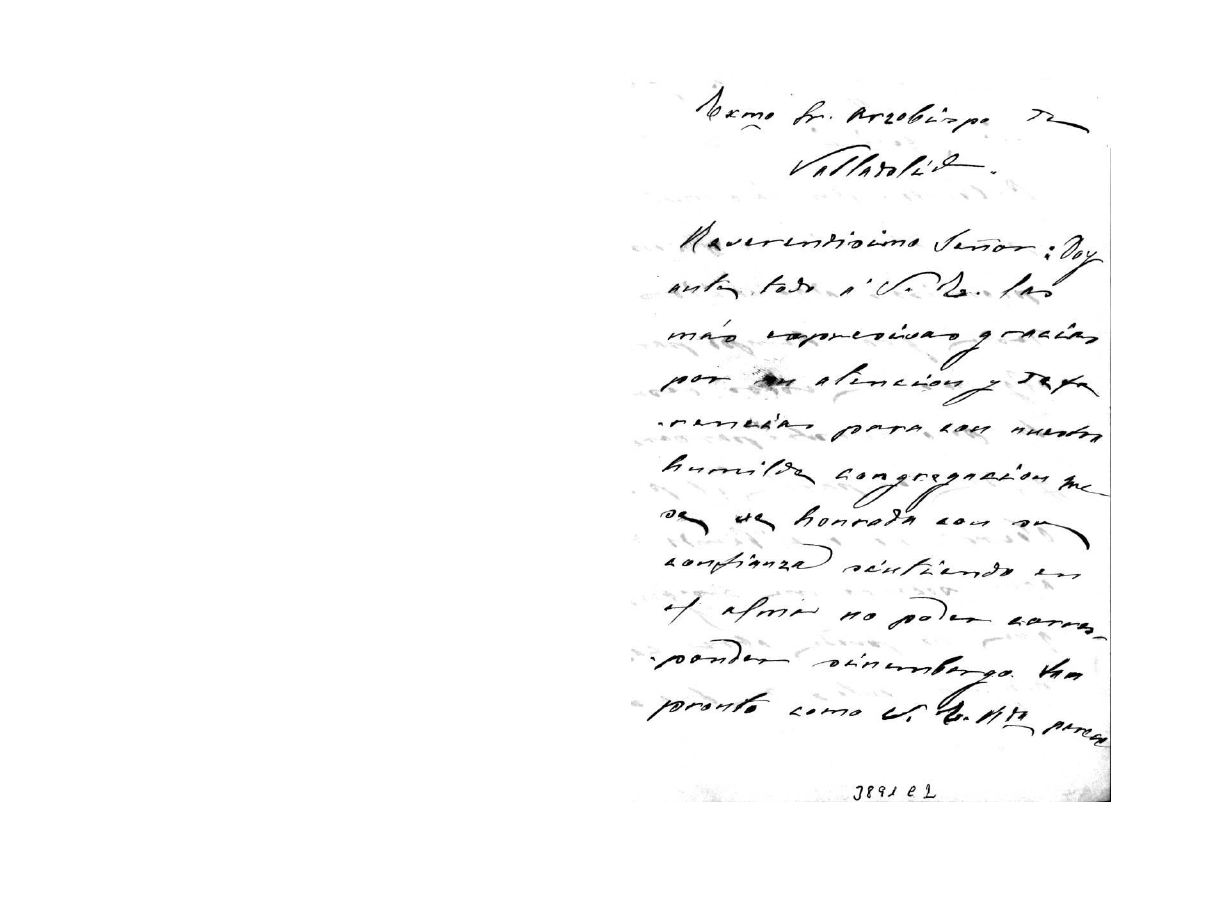 Exmo Sr. Arzobispo de
Valladolid.
Reverendisimo Señor: Doy
ante todo a' V. E. las
más expresivas gracias
por su atencion y defe
rencias para con nuestra
humilde congregacion que
se ve honrada con su
confianza sintiendo en
el alma no poder corres-
ponder sinembargo. tan
pronto como V. E. Rda parece
3891 C 2